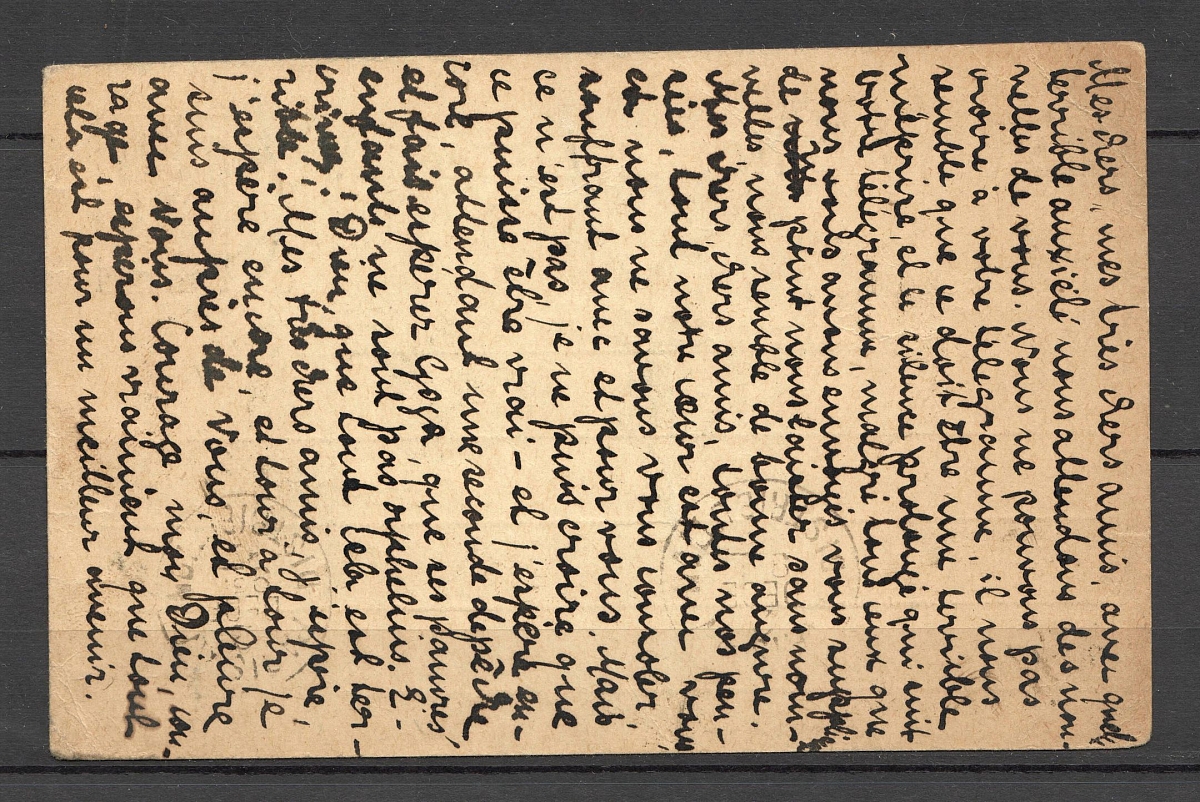 Mes chers, mes très chers amis, avec quelle
terrible anxiété nous attendons des nou-
velles de vous. Nous ne pouvons pas
croire à votre télégramme, il nous
semble que ce doit être une terrible
méprise, et le silence prolongé qui suit
votre télégramme, malgré tout ceux que
nous vous avons envoyés vous suppli
de point nous laisser sans nou-
velles, nous semble de bonne augure.
Mes chers, chers amis, toutes nos pen-
sées, tout notre cœur est avec vous
et nous ne savons vous consoler
souffrant avec et pour vous. Mais
ce n'est pas, je ne puis croire que
ce puisse être vrai - et j'espère en-
core, attendant une seconde depêche
et fais esperer Goga, que ses pauvres
enfants ne sont pas orphelins. E-
crivez; Dieu que tout cela est ter-
rible. Mes très chers amis, j'espère,
j'espère encore, et tour à tour je
suis auprès de Vous, et pleure
avec Vous. Courage mon Dieu, cou-
rage esperons vraiment que tout
cela est pour un meilleur avenir.